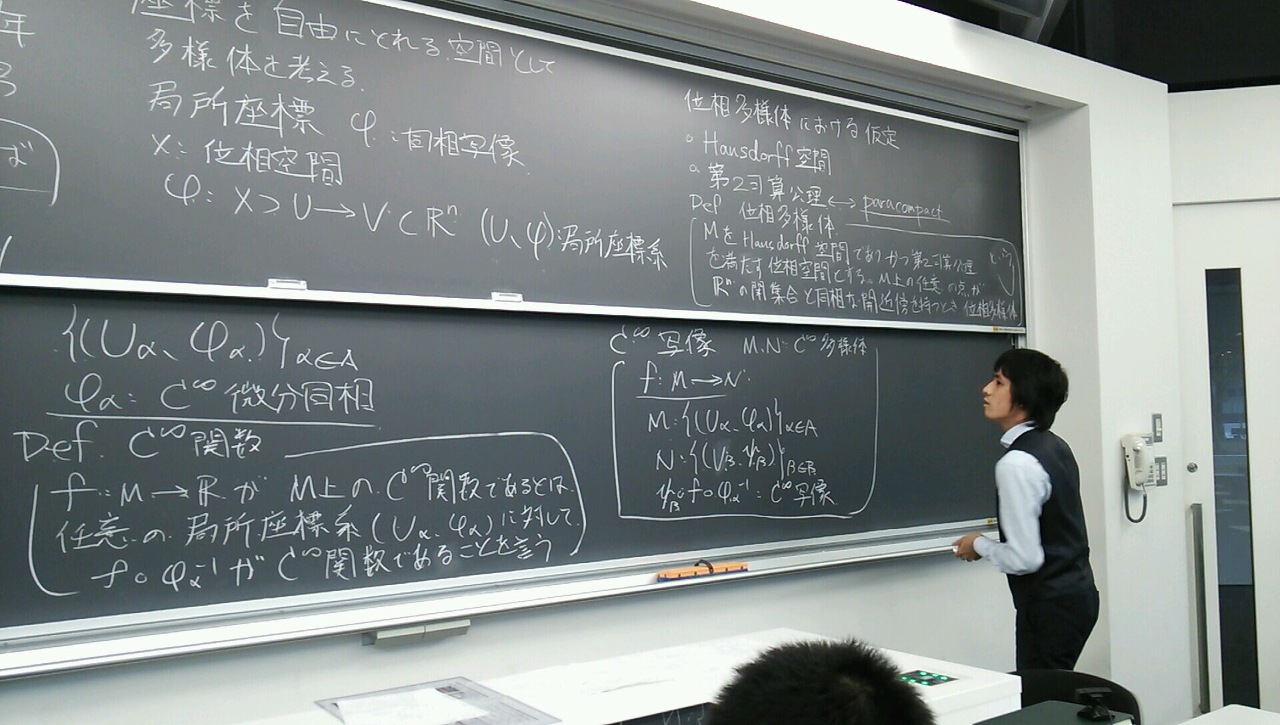 年
ば
座標を自由にとれる空間として
多様体を考える.
局所座標 φ:同相写像
X:位相空間
φ: X⊃U→V⊂ℝⁿ (U、φ)局所座標系
位相多様体における仮定
○ Hausdorff空間
○ 第2可算公理 ↔ paracompact
Def 位相多様体
MをHausdorff空間でありかつ第2可算公理
を満たす位相空間とする。M上の任意の点が
ℝⁿの開集合と同相な開近傍を持つとき 位相多様体
{(Uα、φα)}α∈A
φα: C∞微分同相
Def. C∞関数
f:M→ℝが M上の C∞関数であるとは、
任意の局所座標系(Uα、φα)に対して
f∘φα⁻¹が C∞関数であることを言う
C∞写像 M.N:C∞多様体
f:M→N
M:{(Uα、φα)}α∈A
N:{(Vβ、ψβ)}β∈B
ψβ∘f∘φα⁻¹:C∞写像